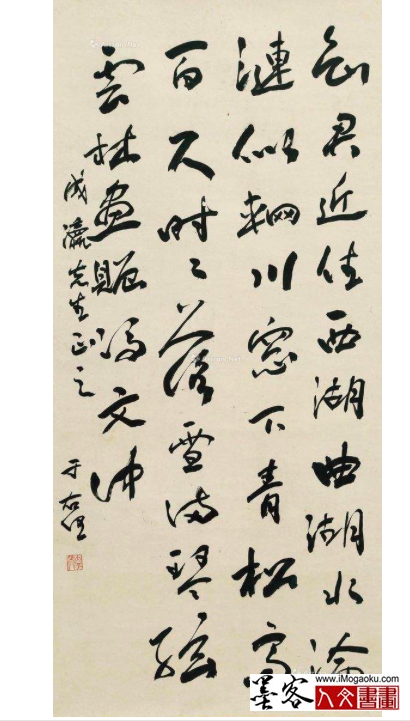 知君近住西湖曲湖水淪
漣似輞川窓下青松高
百尺时〻落雪满琴弦
雲林畫贈馮文仲
成瀛先生正之
于右任
www.iMogaoku.com
墨客人文書畫